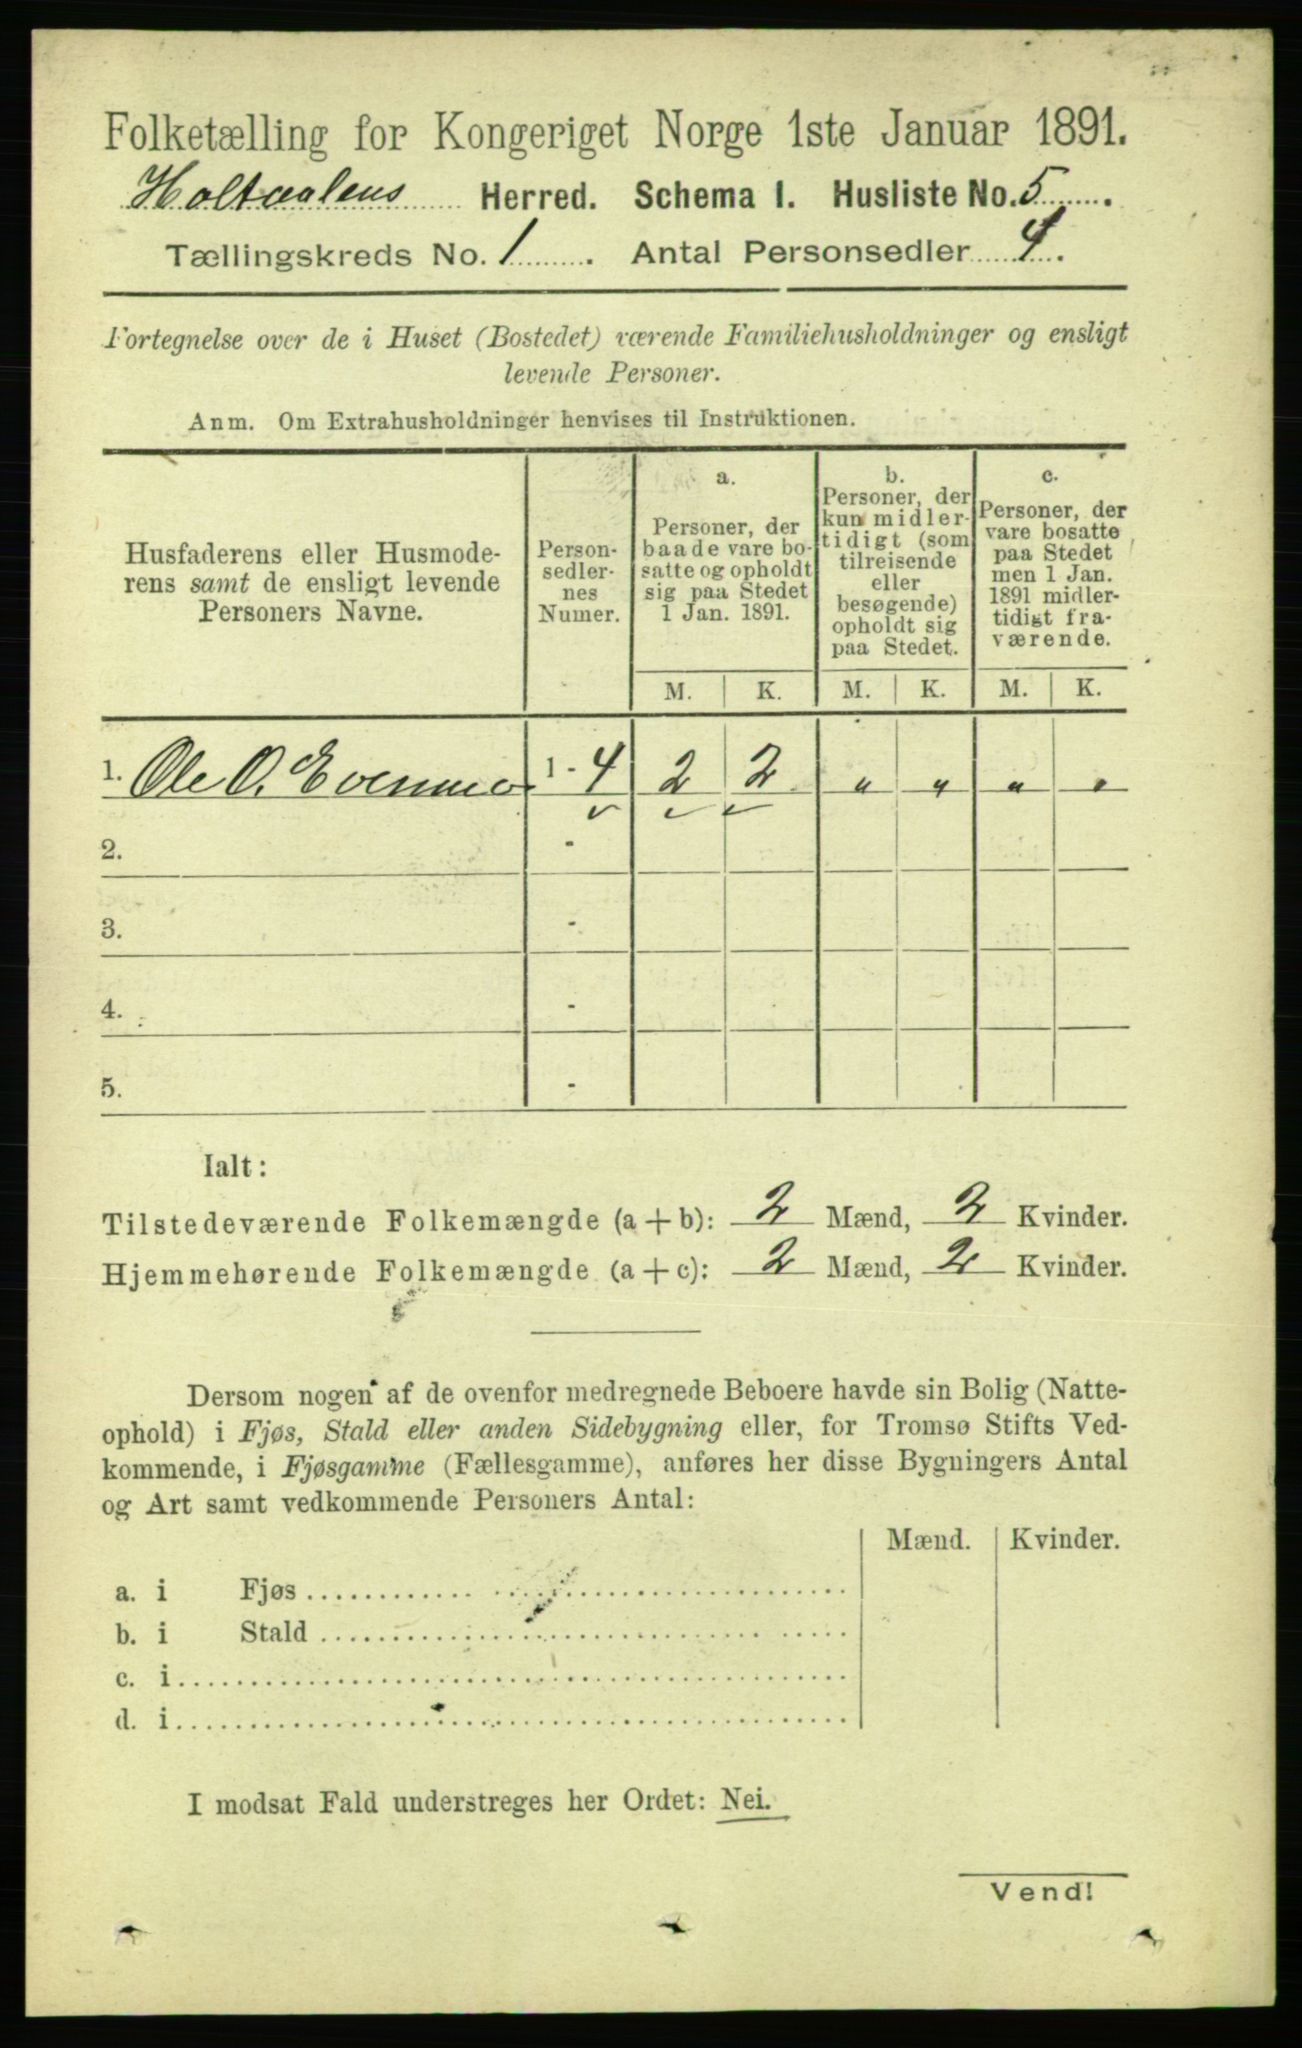 Folketælling for Kongeriget Norge 1ste Januar 1891.
Holtaalens Herred. Schema 1. Husliste No. 5.
Tællingskreds No. 1. Antal Personsedler 4.
Fortegnelse over de i Huset (Bostedet) værende Familiehusholdninger og ensligt
levende Personer.
Anm. Om Extrahusholdninger henvises til Instruktionen.
Husfaderens eller Husmode-
rens samt de ensligt levende
Personers Navne.
Person-
sedler-
nes
Numer.
a.
Personer, der
baade vare bo-
satte og opholdt
sig paa Stedet
1 Jan. 1891.
b.
Personer, der
kun midler-
tidigt (som
tilreisende
eller
besøgende)
opholdt sig
paa Stedet.
c.
Personer, der
vare bosatte
paa Stedet
men 1 Jan.
1891 midler-
tidigt fra-
værende.
M. K. M. K. M. K.
1. Ole O. 1 - 4 2 2 " " " "
2. -
3. -
4. -
5. -
Ialt:
Tilstedeværende Folkemængde (a + b): 2 Mænd, 2 Kvinder.
Hjemmehørende Folkemængde (a + c): 2 Mænd, 2 Kvinder.
Dersom nogen af de ovenfor medregnede Beboere havde sin Bolig (Natte-
ophold) i Fjøs, Stald eller anden Sidebygning eller, for Tromsø Stifts Ved-
kommende, i Fjøsgamme (Fællesgamme), anføres her disse Bygningers Antal
og Art samt vedkommende Personers Antal:
Mænd. Kvinder.
a. i Fjøs
b. i Stald
c. i
d. i
I modsat Fald understreges her Ordet: Nei.
Vend!